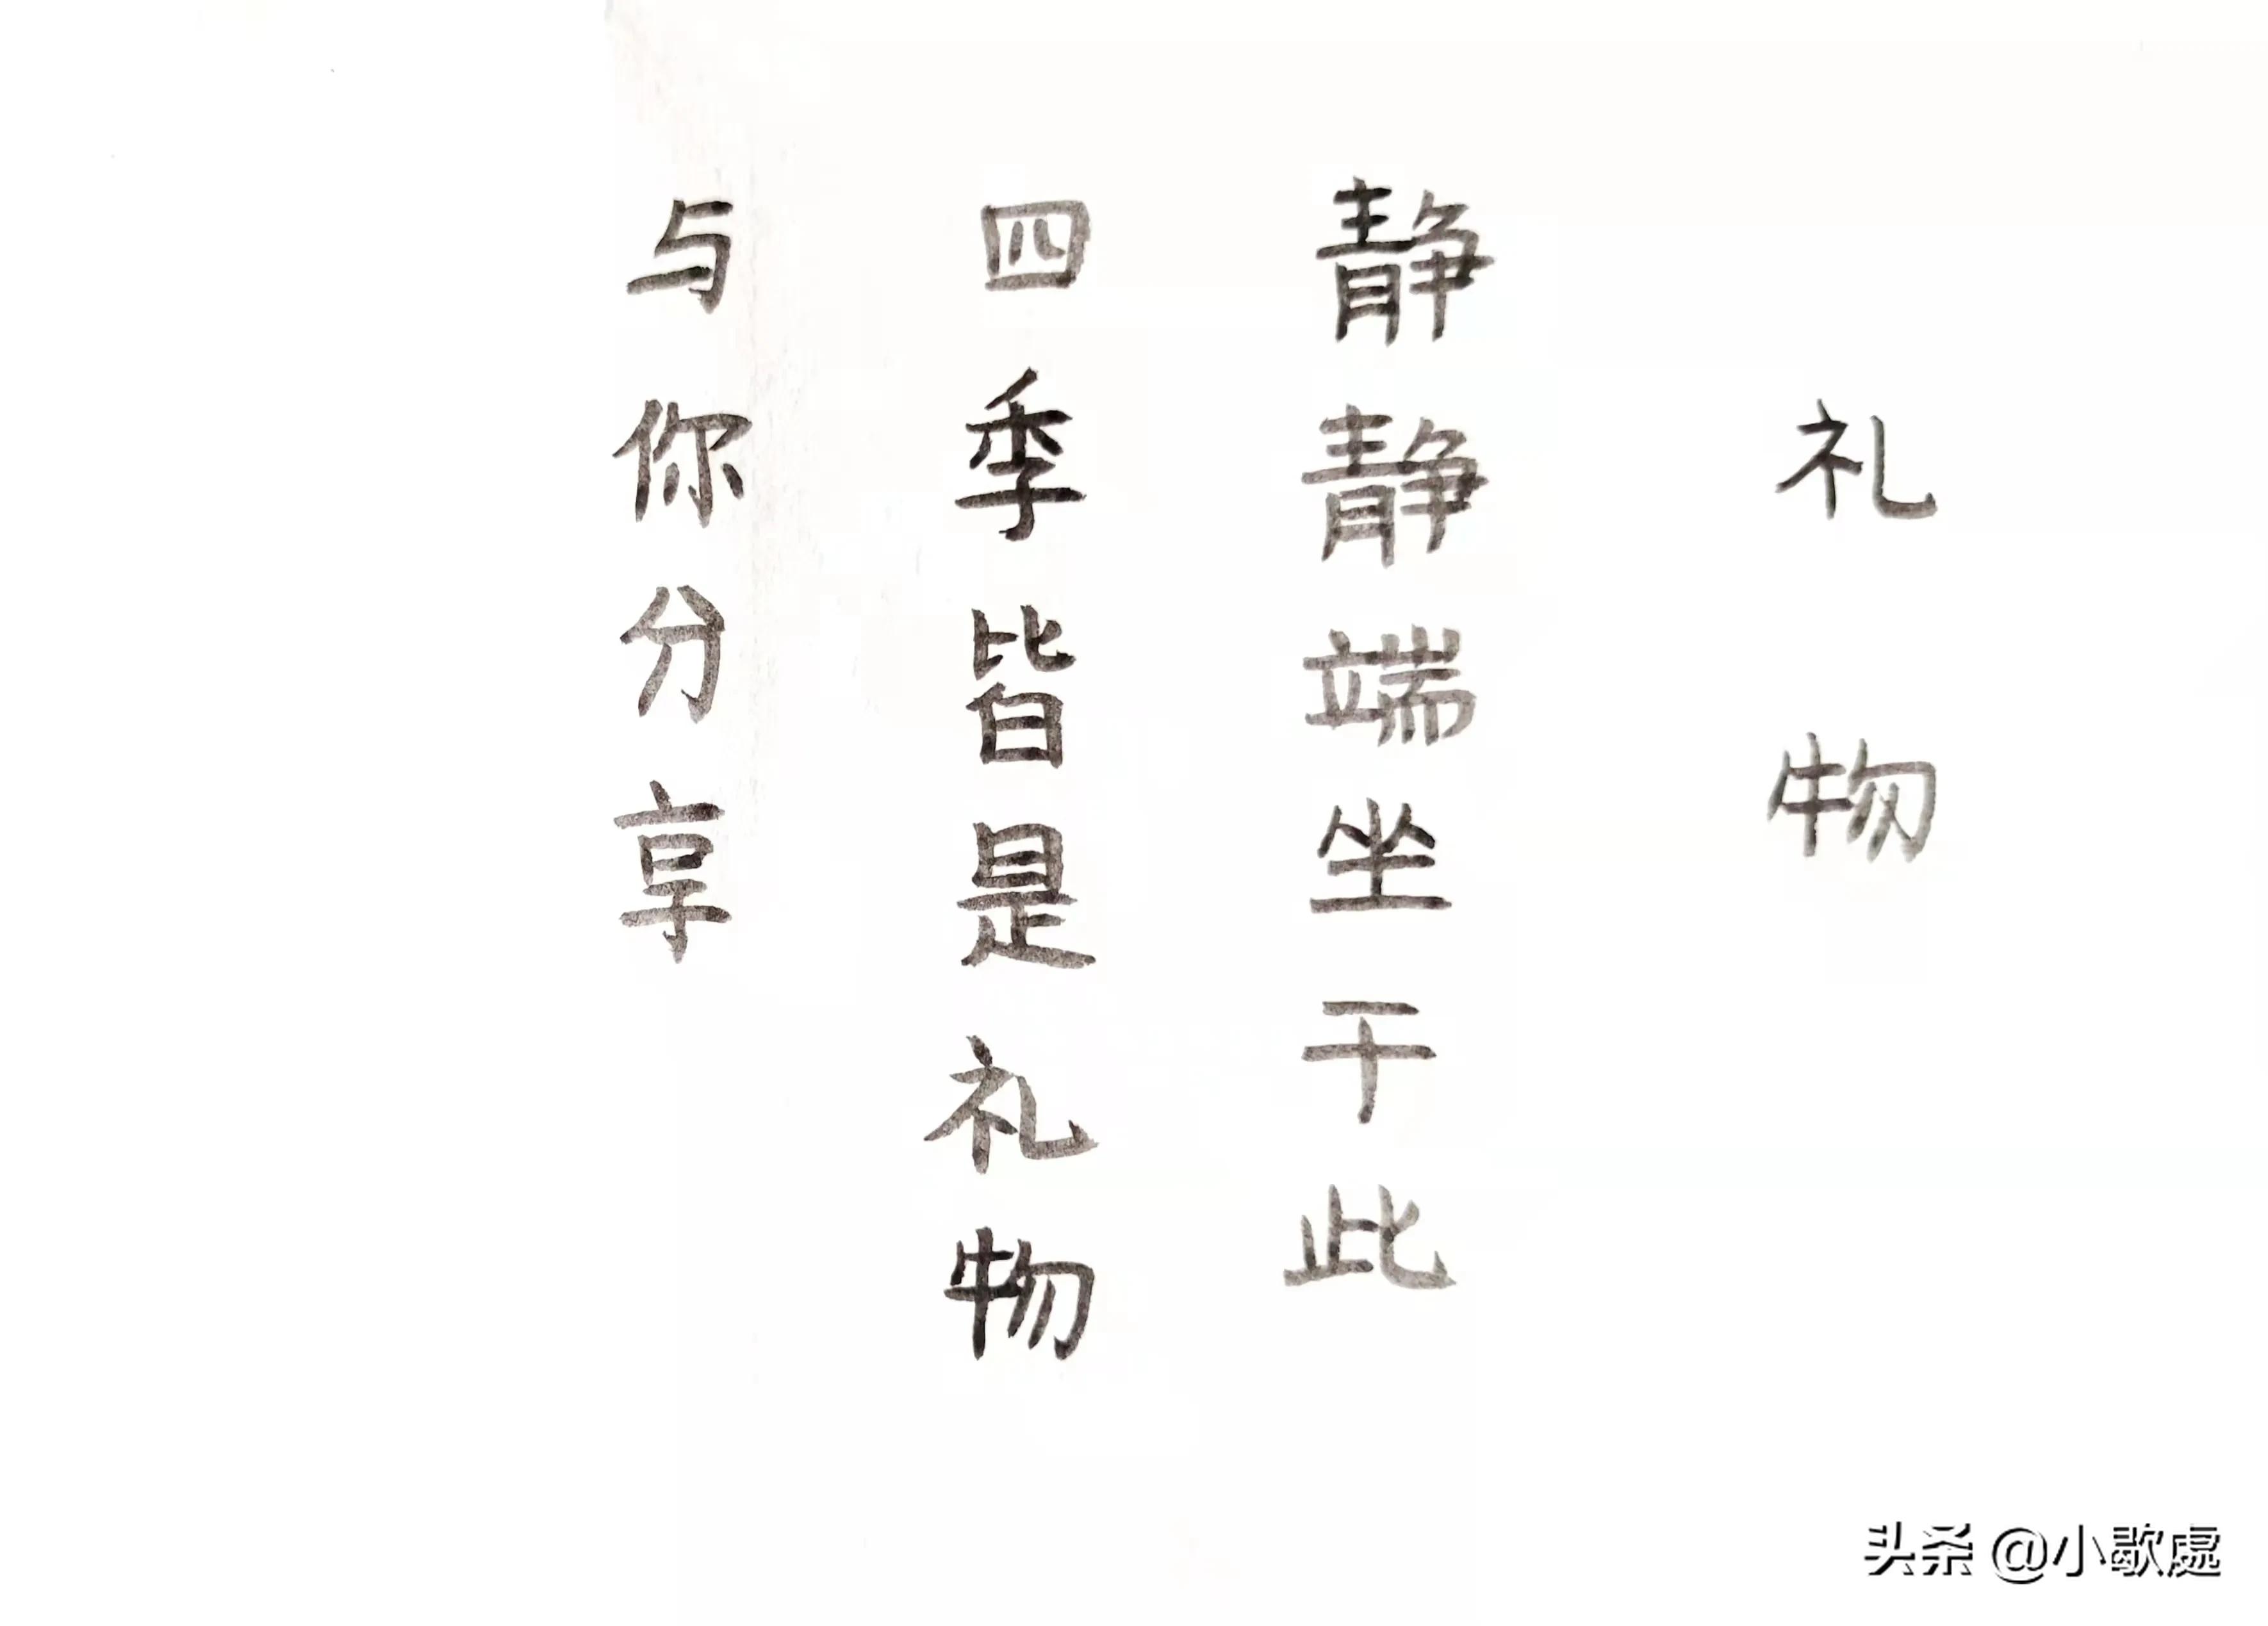 礼物
静静端坐于此
四季皆是礼物
与你分享
头条 @小歇處